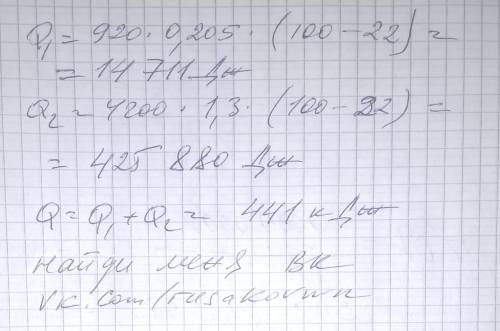 Q₁ = 920 · 0,205 · (100 - 22) =
= 14 711 Дж
Q₂ = 4200 · 1,3 · (100 - 22) =
= 425 880 Дж
Q = Q₁ + Q₂ = 441 кДж
найди меня ВК
vk.com/rusakovmn